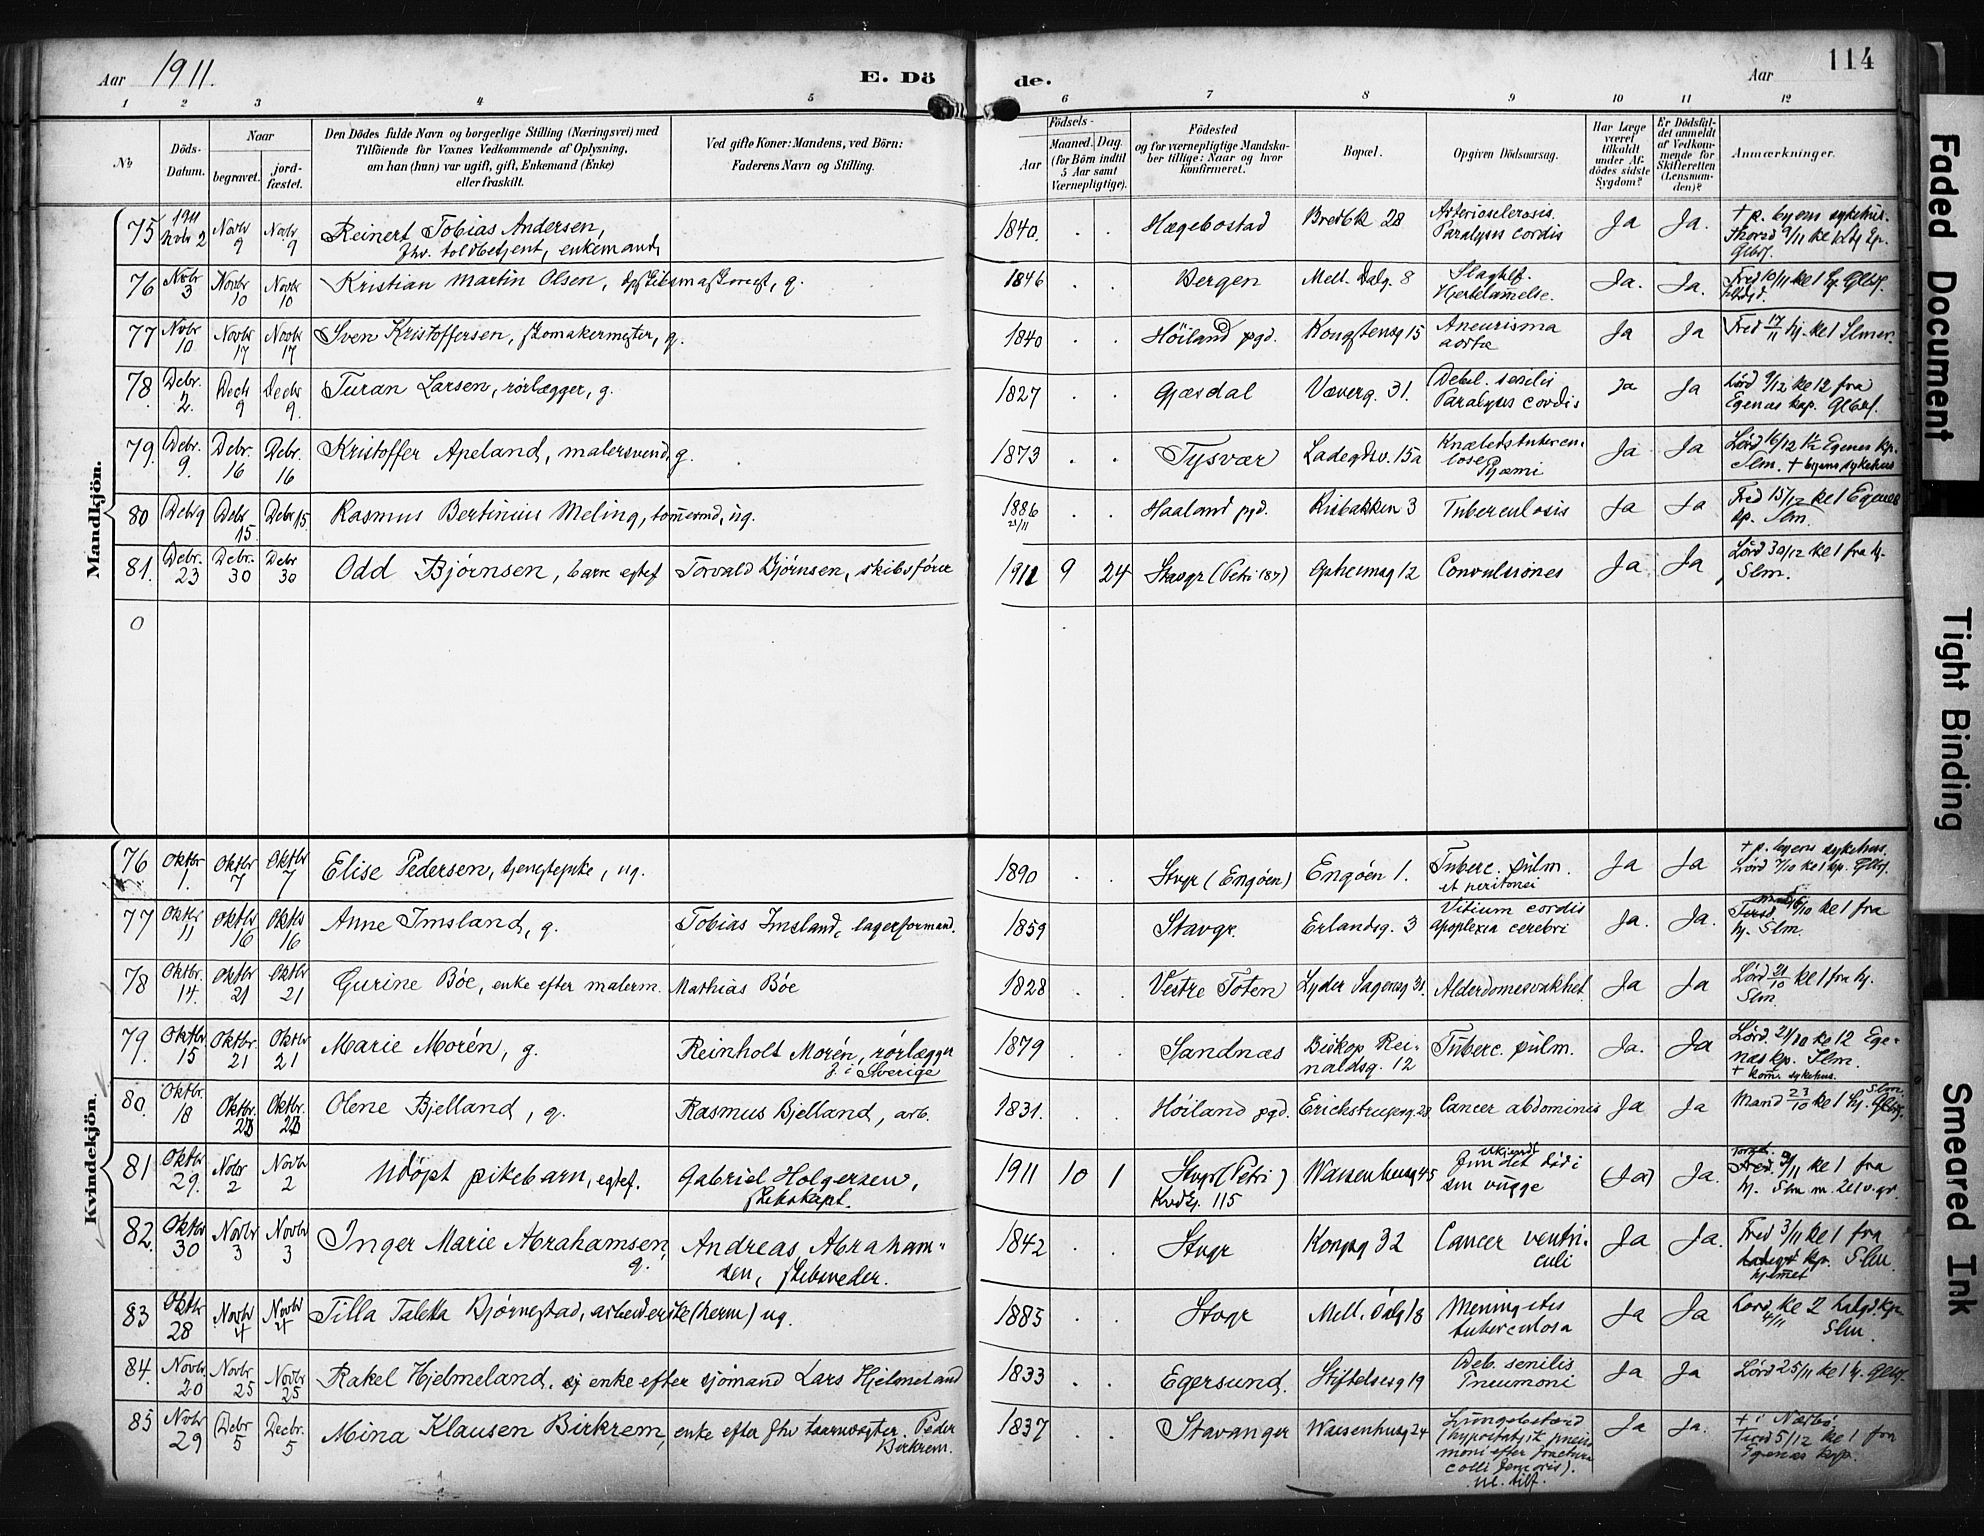 Aar 1911.
E. Dö
de.
Aar
114
1 2 3 4 5 6 7 8 9 10 11 12
No
Döds-Datum.
Naar
begravet.
jord-fæstet.
Den Dödes fulde Navn og borgerlige Stilling (Næringsvei) med
Tilföiende for Voxnes Vedkommende af Oplysning,
om han (hun) var ugift, gift, Enkemand (Enke)
eller fraskilt.
Ved gifte Koner: Mandens, ved Börn:
Faderens Navn og Stilling.
Födsels-
Aar
Maaned. Dag.
(for Börn indtil
5 Aar samt
Værnepligtige).
Födested
og for værnepligtige Mandskaber tillige: Naar og hvor
konfirmeret.
Bopæl.
Opgiven Dödsaarsag.
Har Læge
været
tilkaldt
under Afdödes sidste
Sygdom?
Er Dödsfaldet anmeldt
af Vedkommende for
Skifteretten
(Lensmanden)?
Anmærkninger.
Mandkjön.
75 1911 Novbr 2 Novbr 9 Novbr 9 Reinert Tobias Andersen, fhv. toldbetjent, enkemand, 1840. Hægebostad Bredbk 28 Arteriosclerosis. Paralysis cordis Ja Ja. + p. byens sykehus.
76 Novbr 3 Novbr 10 Novbr 10 Kristian Martin Olsen, g. 1846 . . Bergen Mell. Dalg. 8 Hjertelam̄else. Ja. Ja.
77 Novbr 10 Novbr 17 Novbr 17 Sven Kristoffersen, skomakermester, g. 1840 . . Höiland pgd. Kongstensg 15 Aneurisma aortæ Ja Ja Fred 17/11 hj. kl 1
78. Debr. 2. Decbr 9 Decbr 9. Turan Larsen, rørlægger, g. 1827 . . Gjæsdal Væverg. 31. Debil. senilis Paralysis cordis Ja Ja Lørd 9/12 kl 12 fra Egenæs kap.
79. Debr. 9. Debr. 16 Debr. 16 Kristoffer Apeland, malersvend, g. 1873 . . Tysvær Ladegdsv. 15a Knæledstuberculose Pyæmi Ja Ja Lørd 16/12 Egenes kp. Slm. + byens sykehus
80 Debr 9 Debr 15 Debr 15 Rasmus Bertinius Meling, tøm̄ermd, ug. 1886 21/11 . . Haaland pgd. Risbakken 3 Tuberculosis Ja Ja Fred 15/12 kl 1 Egenes kp. Slm.
81. Debr. 23 Debr. 30 Debr 30 Odd Bjørnsen, barn egtef Torvald Bjørnsen, skibsfører 1911 9 24 Stavgr (Petri 187) Opheimsg 12 Convulsiones Ja Ja Lørd 30/12 kl 1 fra hj. Slm.
0
Kvindekjön.
76 Oktbr 1. Oktbr 7 Oktbr 7 Elise Pedersen, tjenestepike, ug. 1890 . . Stvgr (Engöen) Engöen 1. Tuberc. pulm. et peritonei Ja Ja + p. byens sykehus. Lørd 7/10 kl 1 kp.
77 Oktbr 11 Oktbr 16 Oktbr 16 Anne Imsland, g. Tobias Imsland, lagerformand. 1859 . . Stavgr. Erlandsg. 3 Vitium cordis apoplexia cerebri Ja. Ja. 16/10 kl 1 fra hj. Slm.
78 Oktbr. 14. Oktbr 21 Oktbr 21 Gurine Böe, enke efter malerm. Mathias Böe 1828 . . Vestre Toten Lyder Sagensg 31. Alderdomssvakhet Ja Ja Lørd 21/10 kl 1 fra hj. Slm.
79. Oktbr. 15 Oktbr. 21 Oktbr. 21 Marie Morén, g. Reinholt Morén, rørlægger f. i Sverige 1879 . . Sandnæs Biskop Reinaldsg. 12 Tuberc. pulm. Ja. Ja Lørd. 21/10 kl 12 Egenæs kp. Slm. + kom̄. sykehus.
80. Oktbr. 18 Oktbr. 23 Oktbr. 23 Olene Bjelland, g. Rasmus Bjelland, arb. 1831. . . Höiland pgd. Erichstrupsg. 28 Cancer abdominis Ja Ja Mand 23/10 kl 1 hj. Slm
81 Oktbr 29. Novbr 2 Novbr 2 Udöpt pikebarn, egtef. Gabriel Holgersen, skibskapt. 1911 10 1 Stvgr (Petri) Kvdkj. 115 Waisenhusg 45 Fundet död i sin vugge (Ja) Ja. Fred. /11 kl 1 fra hj. Slm
82. Oktbr 30 Novbr 3 Novbr 3 Inger Marie Abrahamsen, g. Andreas Abrahamsen, skibsreder. 1842 . . Stvgr Kongsg 32 Cancer ventriculi Ja Ja. Fred 3/11 kl 1 fra hjem̄et Slm.
83 Oktbr 28 Novbr 4 Novbr 4 Tilla Taletta Bjørnestad, arbeiderske (herm) ug. 1885 . . Stvgr Mell. Dalg 18 Meningitis tuberculosa Ja Ja Lord 4/11 kl 2 Slm.
84. Novbr. 20 Novbr. 25 Novbr 25 Rakel Hjelmeland, enke efter sjömand Lars Hjelmeland 1833 . . Egersund. Stiftelsesg 19 Deb. senilis Pneumoni Ja Ja Lørd 25/11 kl 1 hj.
85 Novbr 29 Debr 5 Decbr. 5 Mina Klausen Birkrem, enke efter fhv taarnvægter Peder Birkrem. 1837 . . Stavanger Waisenhusg 24 Lungebetænd (hypostatisk pneumoni efter fractura colli femoris). Ja Ja. + i Nærbö. Tirsd 5/12 kl 1 fra Egenæs kap.
Faded Document
Tight Binding
Smeared Ink